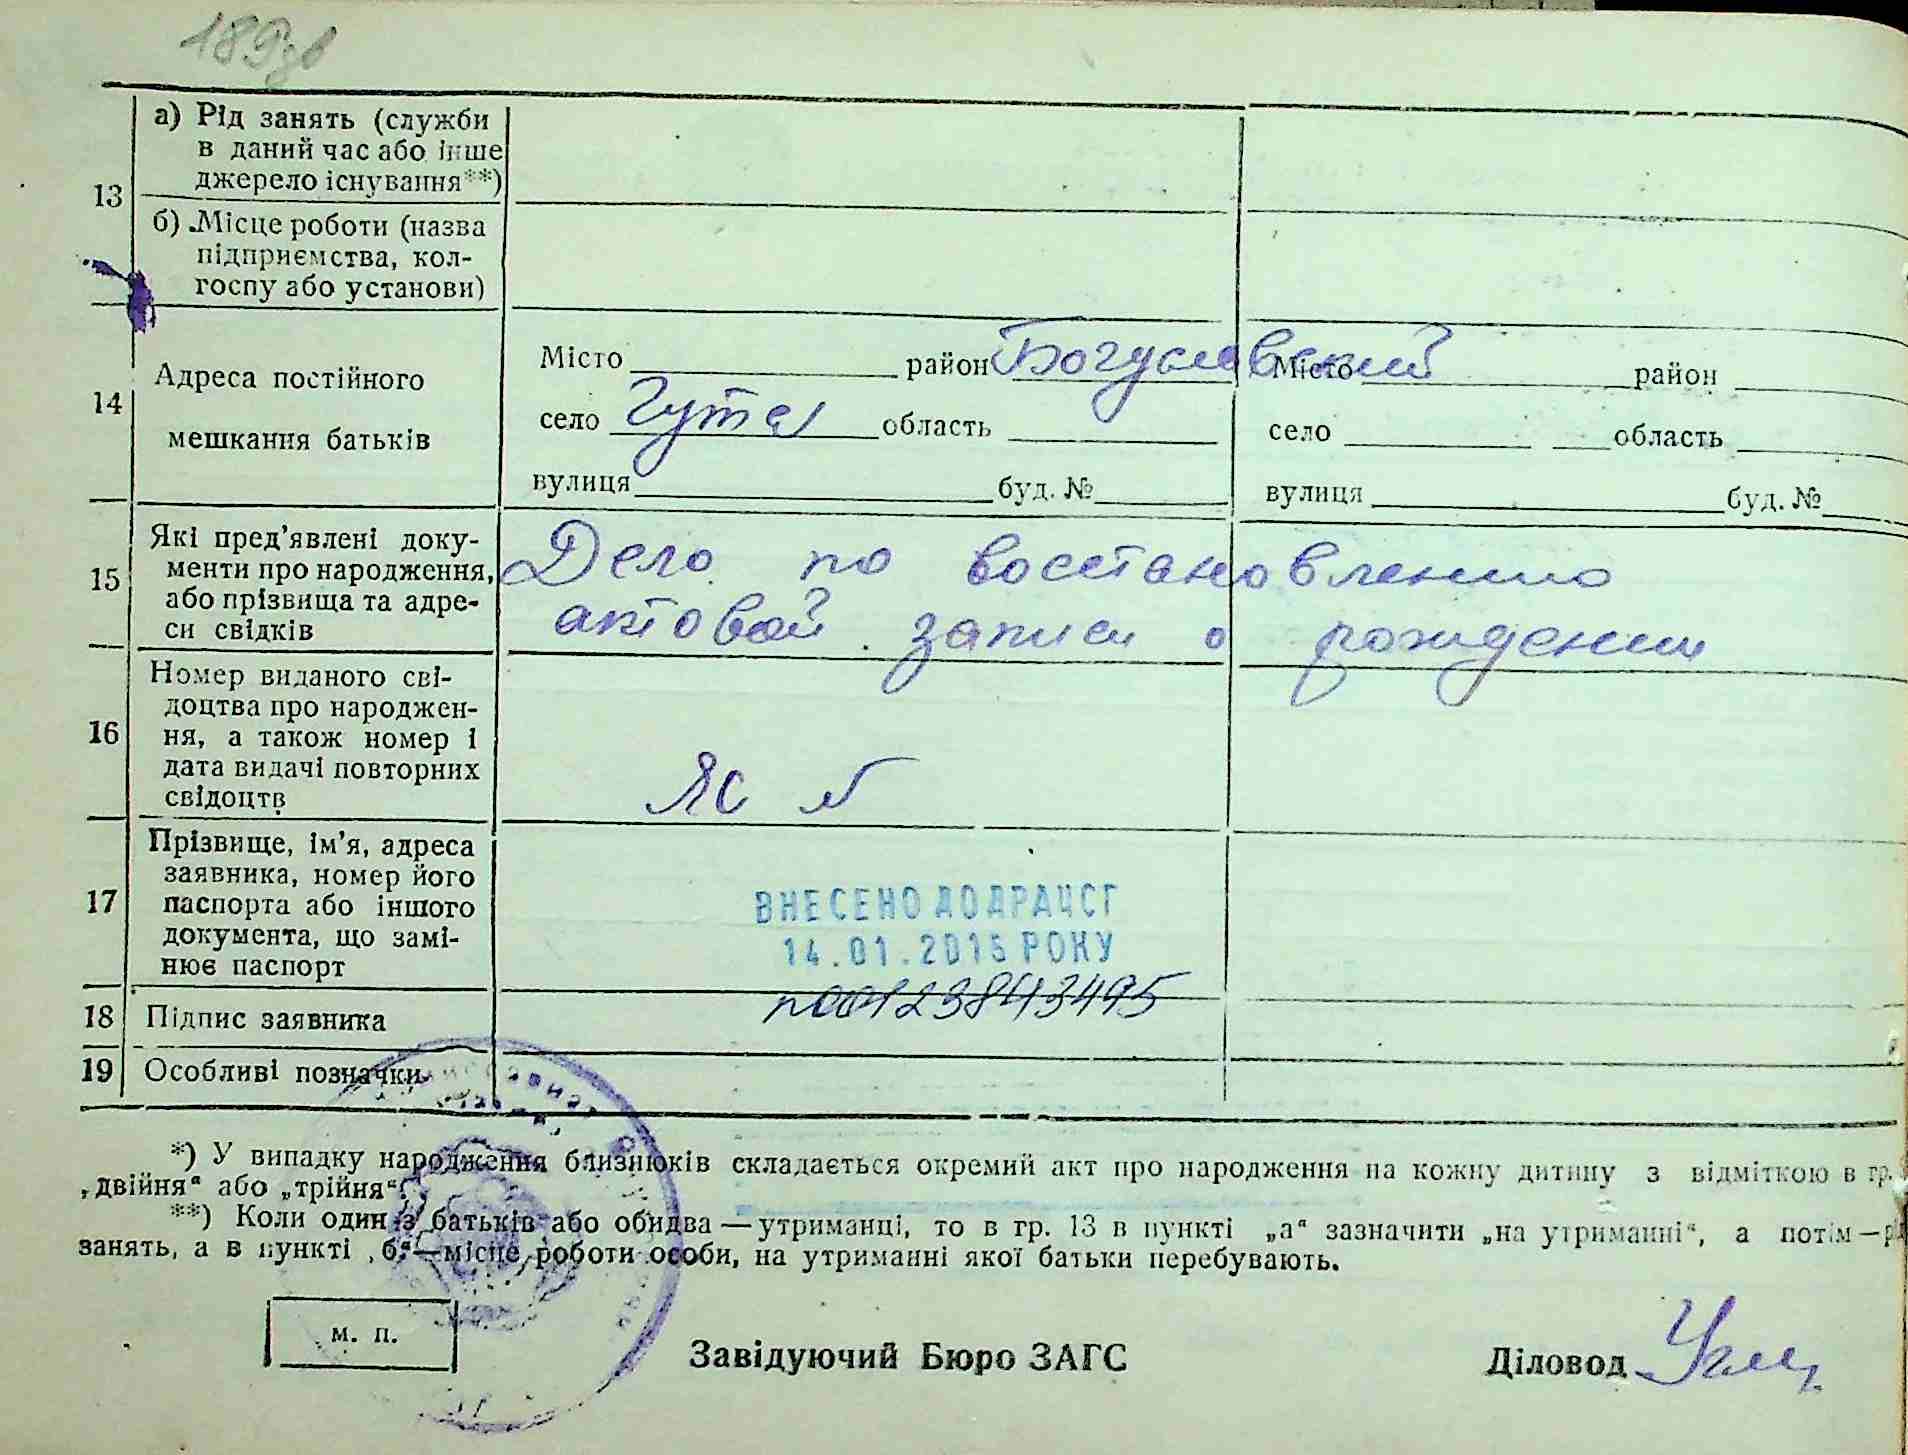 189зв
13
а) Рід занять (служби
в даний час або інше
джерело існування**)
б) Місце роботи (назва
підприємства, кол-
госпу або установи)
14
Адреса постійного
мешкання батьків
Місто район Богуславский
село Гута область
вулиця буд. №
Місто район
село область
вулиця буд. №
15
Які пред'явлені доку-
менти про народження,
або прізвища та адре-
си свідків
Дело по восстановлению
актовой записи о рождении
16
Номер виданого сві-
доцтва про народжен-
ня, а також номер і
дата видачі повторних
свідоцтв
ЯС №
17
Прізвище, ім'я, адреса
заявника, номер його
паспорта або іншого
документа, що замі-
нює паспорт
ВНЕСЕНО ДО ДРАЦСГ
14.01.2015 РОКУ
n00123843495
18 Підпис заявника
19 Особливі позначки
*) У випадку народження близнюків складається окремий акт про народження на кожну дитину з відміткою в гр.
„двійня“ або „трійня“.
**) Коли один з батьків або обидва — утриманці, то в гр. 13 в пункті „а“ зазначити „на утриманні“, а потім — рід
занять, а в пункті „б“ — місце роботи особи, на утриманні якої батьки перебувають.
м. п.
Завідуючий Бюро ЗАГС
Діловод